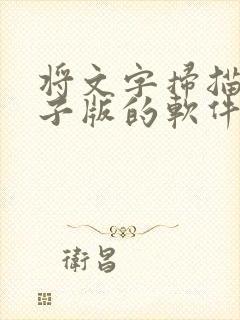 將文字掃描
子版的軟件
衛昌